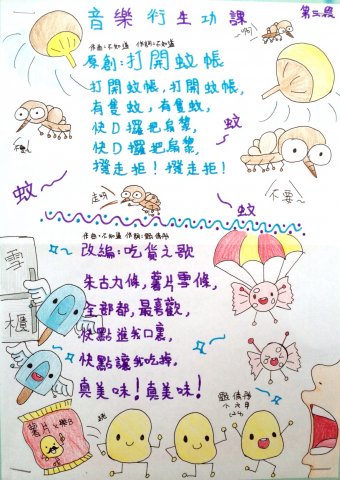 音樂衍生功課
第三段
作曲:不知道 作詞:不知道
原創:打開蚊帳
打開蚊帳,打開蚊帳,
有隻蚊,有隻蚊,
快D攞把扇嚟,
快D攞把扇嚟,
撥走拒!撥走拒!
蚊
不要~
蚊
走呀
不要~
蚊
作曲:不知道
改編:吃貨之歌
朱古力條,薯片雪條,
全部都,最喜歡,
快點進我口裏,
快點讓我吃掉,
真美味!真美味!
雪
櫃
薯片